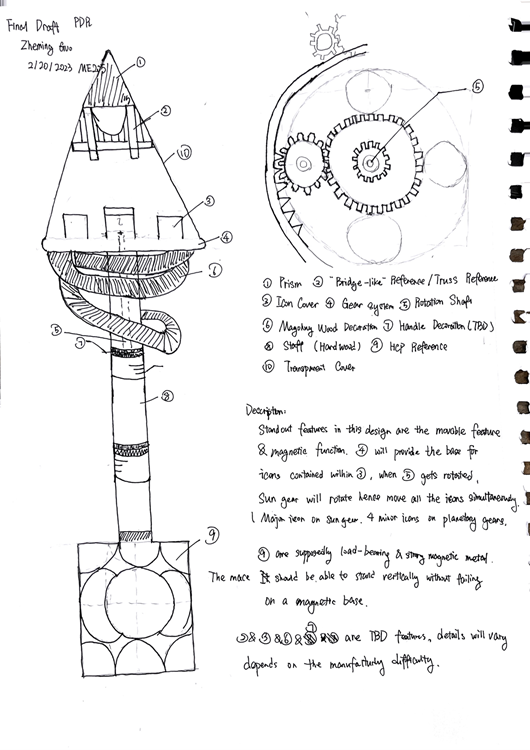 Final Draft PDR
Zheming Guo
2/20/2023 ME205
①
②
⑩
③
④
⑥
⑤
⑦
⑧
⑨
⑤
① Prism ② "Bridge-like" Reference/Truss Reference
③ Icon Cover ④ Gear System ⑤ Rotation Shaft
⑥ Wood Decoration ⑦ Handle Decoration (TBD)
⑧ Staff (Hardwood) ⑨ HCP Reference
⑩ Transparent Cover
Description:
Standout features in this design are the movable feature
& magnetic function. ④ will provide the base for
icons contained within ③, when ⑤ gets rotated,
Sun gear will rotate hence move all the icons simultaneously.
1 Major icon on sun gear. 4 minor icons on planetary gears.
⑨ are supposedly load-bearing & strong magnetic metal.
The mace It should be able to stand vertically without failing
on a magnetic base.
⑦
are TBD features, details will vary
depends on the manufacturing difficulty.